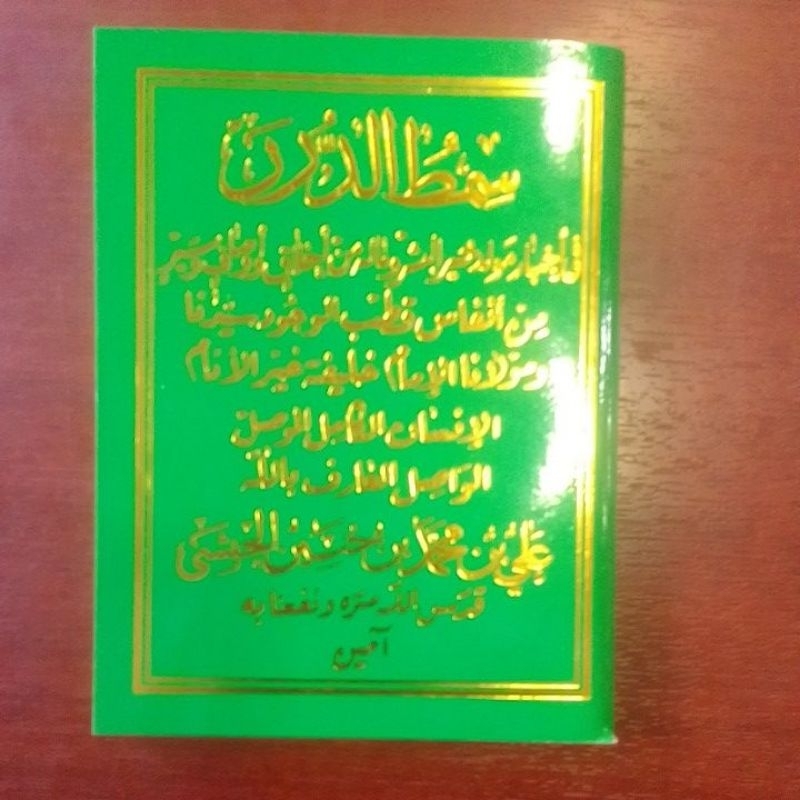 سمط الدرر
في أخبار مولد خير البشر وما له من أخلاق وأوصاف وسير
من أنفاس قطب الوجود سيدنا
ومولانا الإمام خليفة خير الأنام
الإنسان الكامل الموصل
الواصل العارف بالله
عَلِي بْن مُحَمَّد بن حُسَيْن الحَبْشِي
قدس الله سره ونفعنا به
آمين